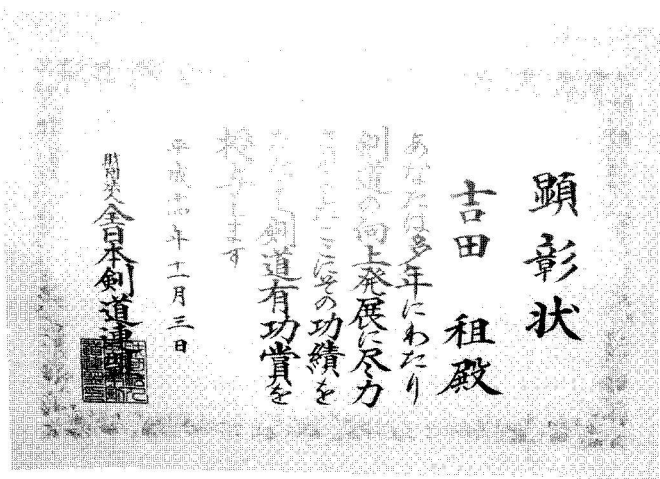 顕彰状
吉田 租殿
あなたは多年にわたり
剣道の向上発展に尽力
されたここにその功績を
たたえ剣道有功賞を
授与します
平成十四年十一月三日
財団法人全日本剣道連盟